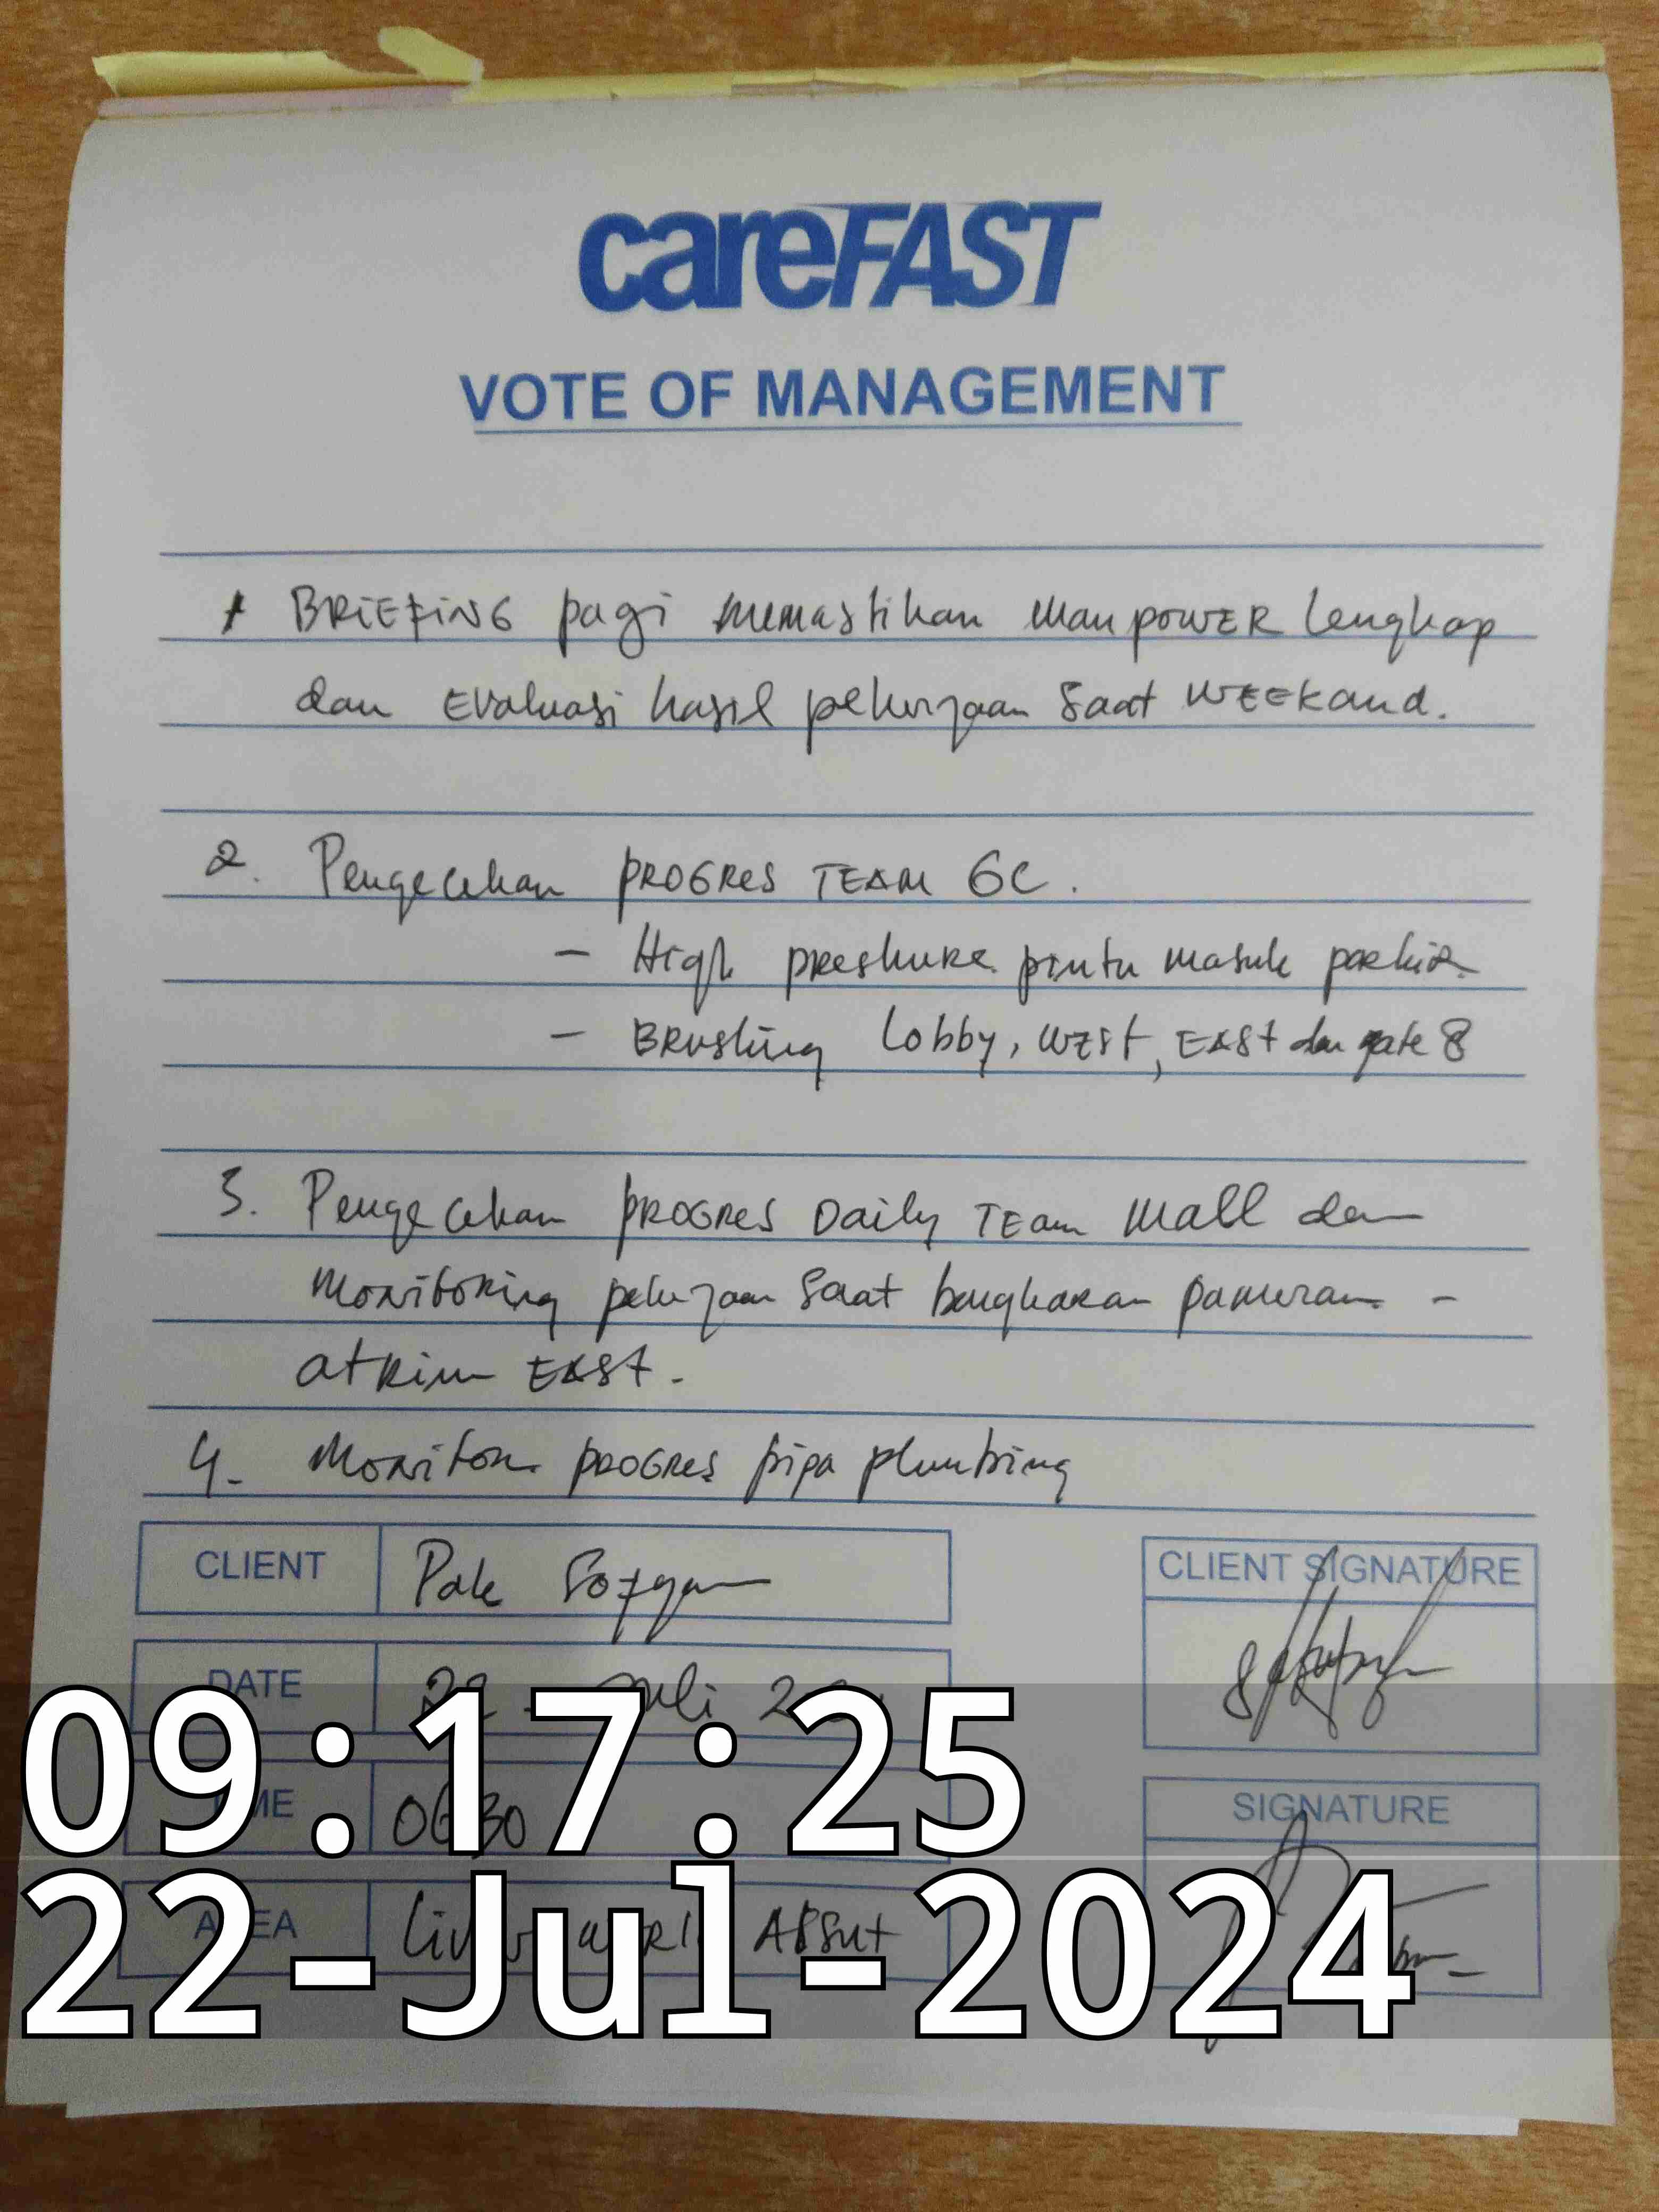 careFAST
VOTE OF MANAGEMENT
1 BRIEFING pagi memastikan manpowER lengkap
dan Evaluasi hasil pekerjaan saat WEEKand.
2. Pengecekan PROGRes TEAM GC.
- High preshure pintu masuk parkir
- BRushing Lobby, WEST, EAST dan gate 8
3. Pengecekan PROGRes Daily TEam Mall dan
Monitoring pekerjaan saat bongkaran pameran -
atrium EAST.
4. Monitor PROGRes pipa plumbing
CLIENT Pak
CLIENT SIGNATURE
DATE 22 Juli
09:17:25
TIME 0630
SIGNATURE
AREA
22-Jul-2024